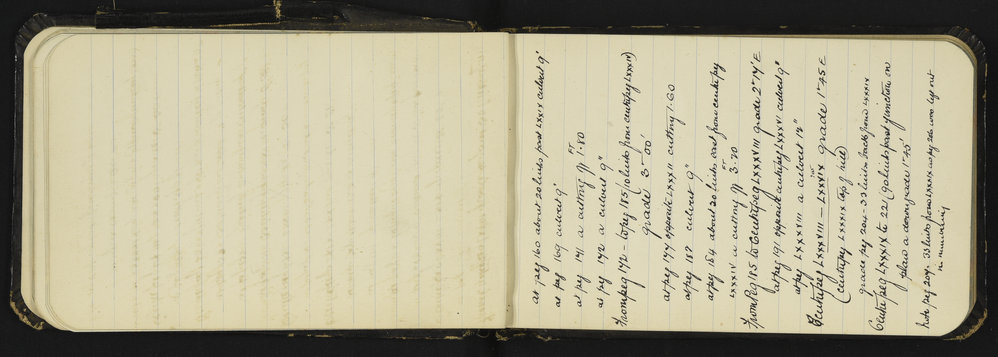 at peg 160 about 20 links past LXXIX culvert 9"
at peg 169 culvert 9"
at peg 171 a cutting of 1.80 FT
at peg 172 a culvert 9"
From peg 172 - to peg 185 (10 links from centrepeg LXXXIV)
grade 3°-00'
at peg 177 opposite LXXXII cutting 1.60
at peg 182 culvert 9"
at peg 184 about 20 links east from centrepeg
LXXXIV a cutting of 3.20 FT
From peg 185 to Centrepeg LXXXVIII grade 2°14' E
at peg 191 opposite centrepeg LXXXVI culvert 9"
at peg LXXXVIII a culvert 12"
Centrepeg LXXXVIII — LXXXIX grade 1°45' E
(centrepeg LXXXIX top of hill)
grade peg 204 - 33 links back from LXXXIX
Centrepeg LXXXIX to 221 (90 links past junction on
plan a down grade 1°45'
note peg 204. 33 links from LXXXIX as peg 206 were left out
in numbering